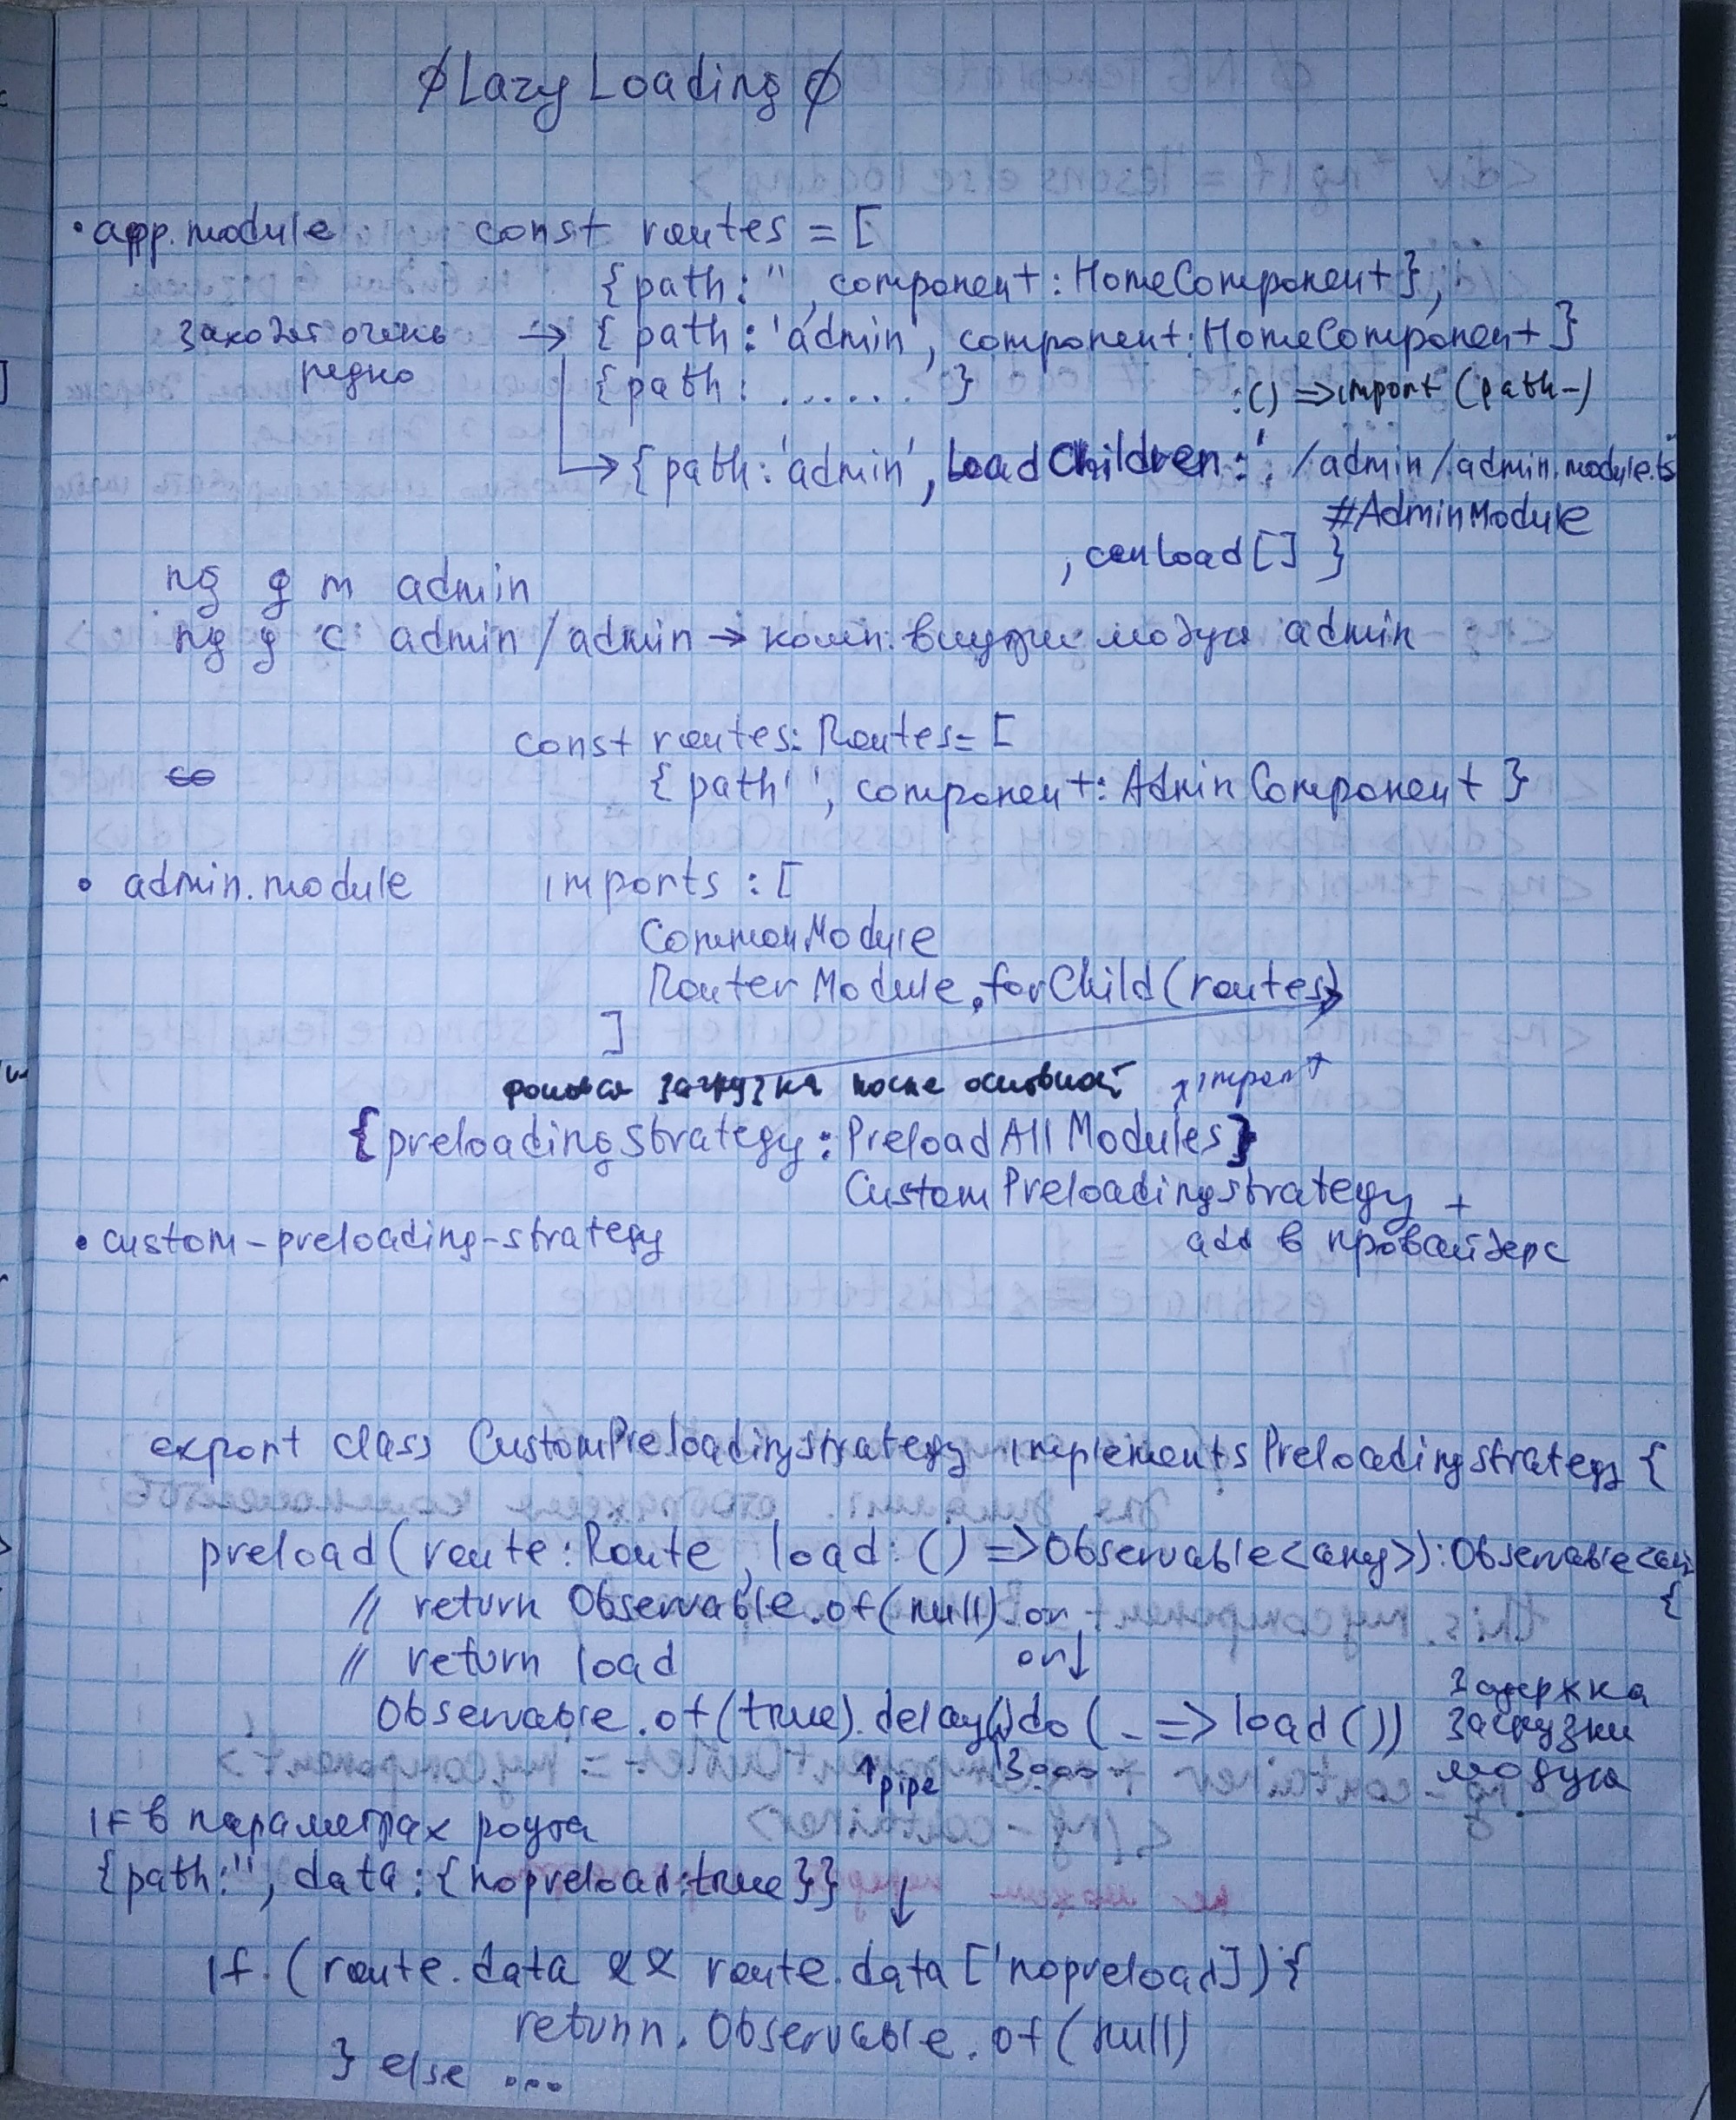 ∅ Lazy Loading ∅
• app.module const routes = [
{path: '', component: HomeComponent},
заходят очень редко → { path: 'admin', component: HomeComponent }
{path: ...... }
: () => import (path-)
→ {path: 'admin', loadChildren: './admin/admin.module.ts
#AdminModule
, canLoad [] }
ng g m admin
ng g c admin / admin → комп. внутри модуля admin
const routes: Routes = [
{ path '', component: AdminComponent }
• admin.module imports : [
CommonModule
RouterModule.forChild(routes)
]
фоновая загрузка после основной ↑ import ↑
{preloadingStrategy: PreloadAllModules}
CustomPreloadingStrategy +
add в провайдерс
• custom-preloading-strategy
export class CustomPreloadingStrategy implements PreloadingStrategy {
preload(route: Route, load: () => Observable<any>): Observable<any
{
// return Observable.of(null) or
// return load or ↓
Observable.of(true).delay().do(_ => load())
↑ pipe 3000
Задержка
загрузки
модуля
If в параметрах роута
{path: '', data: {nopreload: true}} ↓
if (route.data && route.data['nopreload]) {
return. Observable.of(null)
} else ...